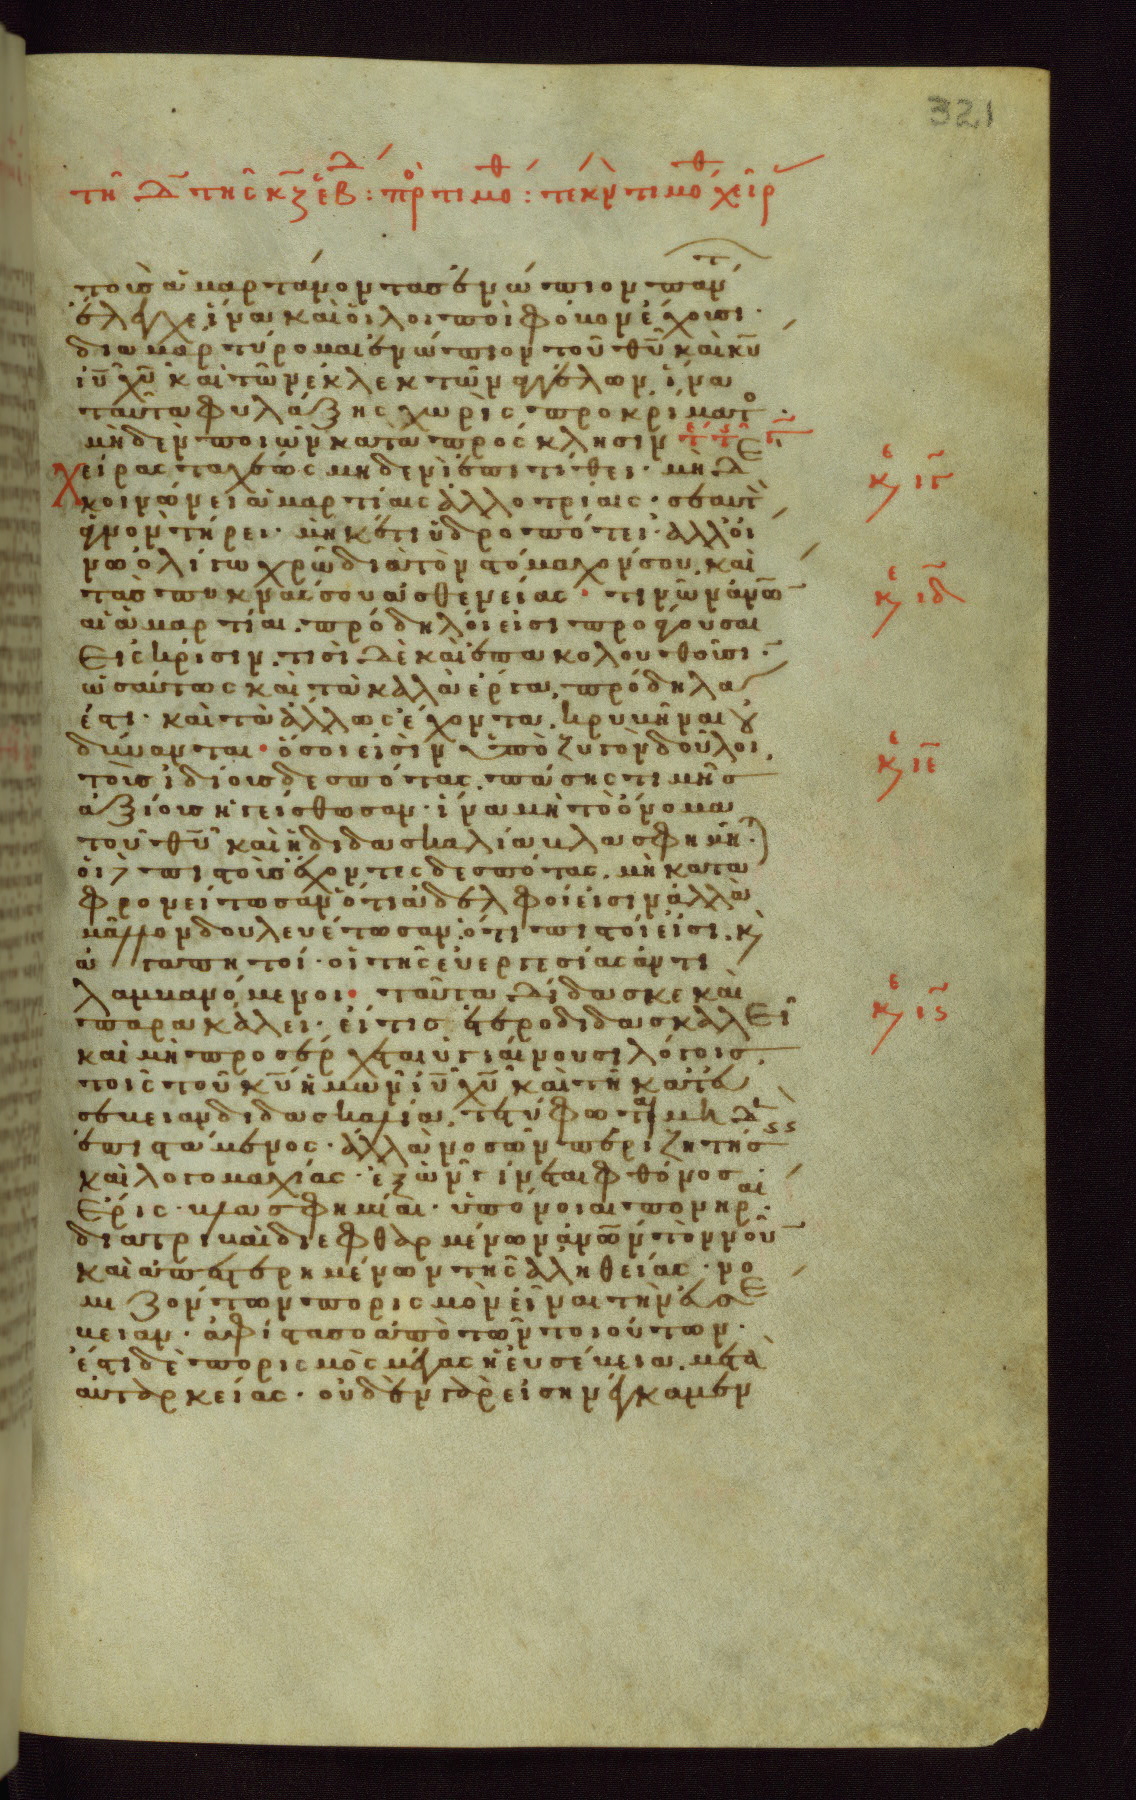 321
τῇ δ̅ τῆς κζ ἑβδ : πρ τιμόθ : τέκν τιμόθ χεῖρ
τοὺς ἁμαρτάνοντας ἐνώπιον πάντ
ἔλεγχε ἵνα καὶ οἱ λοιποὶ φόβον ἔχωσι·
διαμαρτύρομαι ἐνώπιον τοῦ θυ̅ καὶ κυ̅
ιυ̅ χυ̅ καὶ τῶν ἐκλεκτῶν ἀγγέλων, ἵνα
ταῦτα φυλάξης χωρὶς προκρίματο·
μηδὲν ποιῶν κατὰ πρόσκλησιν
χεῖρας ταχέως μηδενὶ ἐπιτίθει· μηδὲ
κε ιγ
κοινώνει ἁμαρτίαις ἀλλοτρίαις· σεαυτὸ
ἁγνὸν τήρει· μηκέτι ὑδροπότει· ἀλλ' οἴ
νω ὀλίγω χρῶ διὰ τὸν στόμαχόν σου, καὶ
τὰς πυκνάς σου ἀσθενείας· τινῶν ἀνω̅ν
κε ιδ
αἱ ἁμαρτίαι πρόδηλοί εἰσι προάγουσαι
εἰς κρίσιν. τισὶ δὲ καὶ ἐπακολουθοῦσι·
ὡσαύτως καὶ τὰ καλὰ ἔργα, πρόδηλα
ἐστι· καὶ τὰ ἄλλως ἔχοντα, κρυβῆναι οὐ
δύνανται· ὅσοι εἰσὶν ὑπὸ ζυγὸν δοῦλοι,
κε ιε
τοὺς ἰδίους δεσπότας, πάσης τιμῆς
ἀξίους ἡγείσθωσαν· ἵνα μὴ τὸ ὄνομα
τοῦ θυ̅ καὶ ἡ διδασκαλία βλασφημῆ·
οἱ δ πιστοὺς ἔχοντες δεσπότας, μὴ κατα
φρονείτωσαν ὅτι ἀδελφοί εἰσιν ἀλλὰ
μᾶλλον δουλευέτωσαν, ὅτι πιστοί εἰσι, κ
ἀγαπητοί· οἱ τῆς εὐεργεσίας ἀντι
λαμβανόμενοι· ταῦτα δίδασκε καὶ
παρακάλει· εἴ τις ἑτεροδιδασκαλεῖ
κε ις
καὶ μὴ προσέρχεται ὑγιαίνουσι λόγοις,
τοῖς τοῦ κυ̅ ἡμῶν ιυ̅ χυ̅ καὶ τῆ κατ' εὐ
σέβειαν διδασκαλία, τετύφωται μηδὲν
ἐπιστάμενος· ἀλλὰ νοσῶν περὶ ζητήσεις
καὶ λογομαχίας· ἐξ ὧν γίνεται φθόνος·
ἔρις· βλασφημίαι· ὑπόνοιαι πονηραί·
διατριβαὶ διεφθαρμένων ἀνω̅ν τὸν νοῦν
καὶ ἀπεστερημένων τῆς ἀληθείας· νο
μιζόντων πορισμὸν εἶναι τὴν εὐσέ
βειαν· ἀφίστασο ἀπὸ τῶν τοιούτων·
ἔστι δὲ πορισμὸς μέγας ἡ εὐσέβεια, μετὰ
αὐταρκείας· οὐδὲν γὰρ εἰσηνέγκαμεν